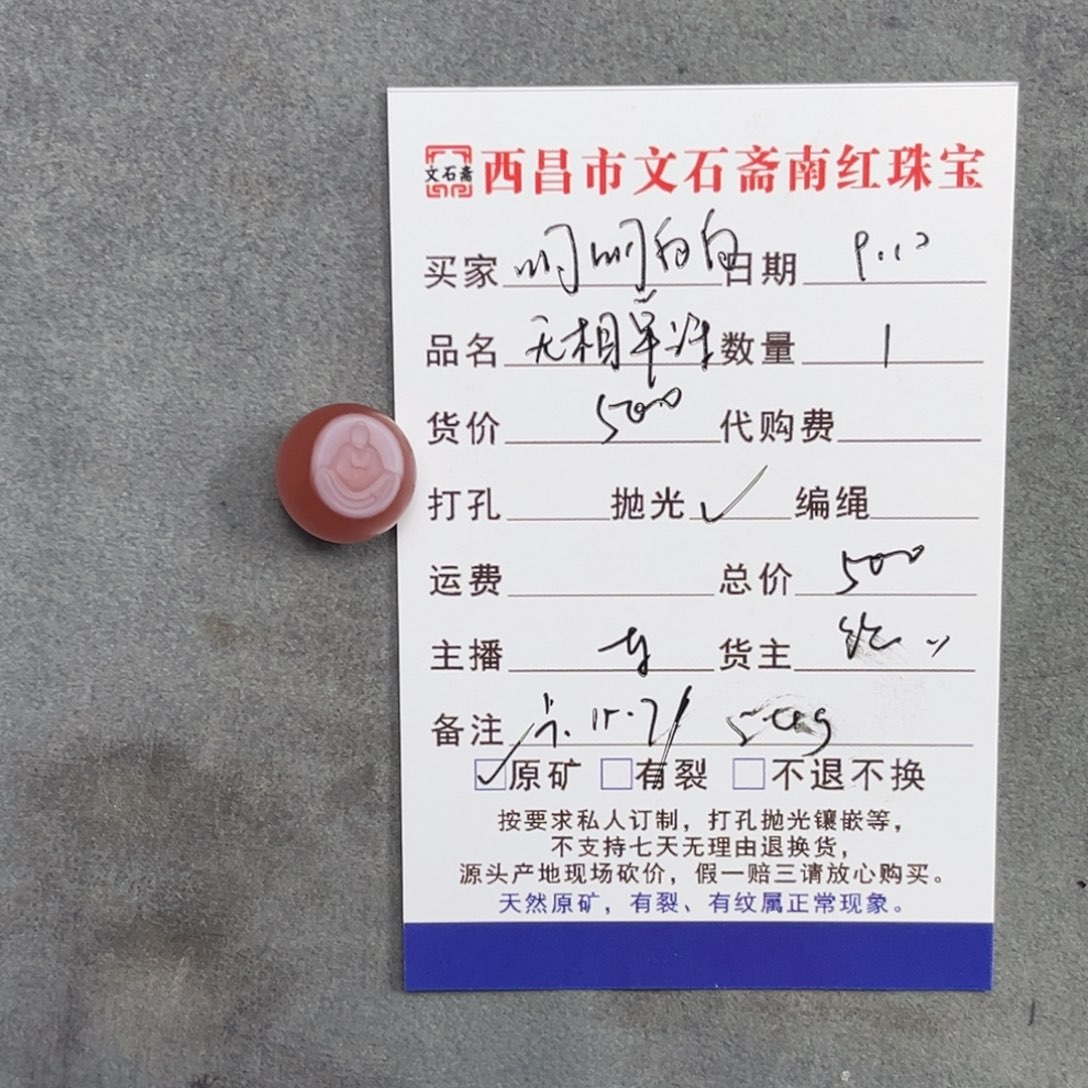 文石斋 西昌市文石斋南红珠宝
买家 明明白白 日期
品名 无相单珠 数量 1
货价 500 代购费
打孔 抛光 ✓ 编绳
运费 总价 500
主播 货主
备注
✓原矿 □有裂 □不退不换
按要求私人订制，打孔抛光镶嵌等，
不支持七天无理由退换货，
源头产地现场砍价，假一赔三请放心购买。
天然原矿，有裂、有纹属正常现象。